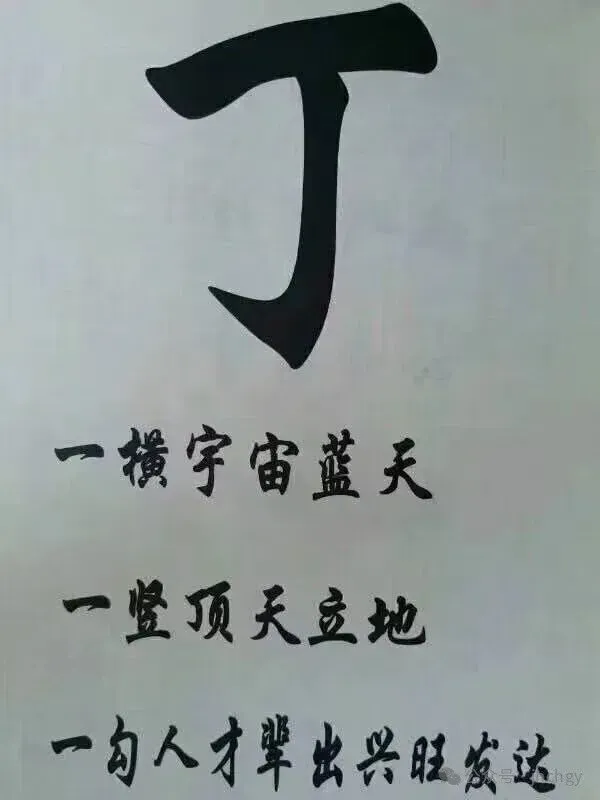 丁
一横宇宙蓝天
一竖顶天立地
一勾人才辈出兴旺发达
公众号